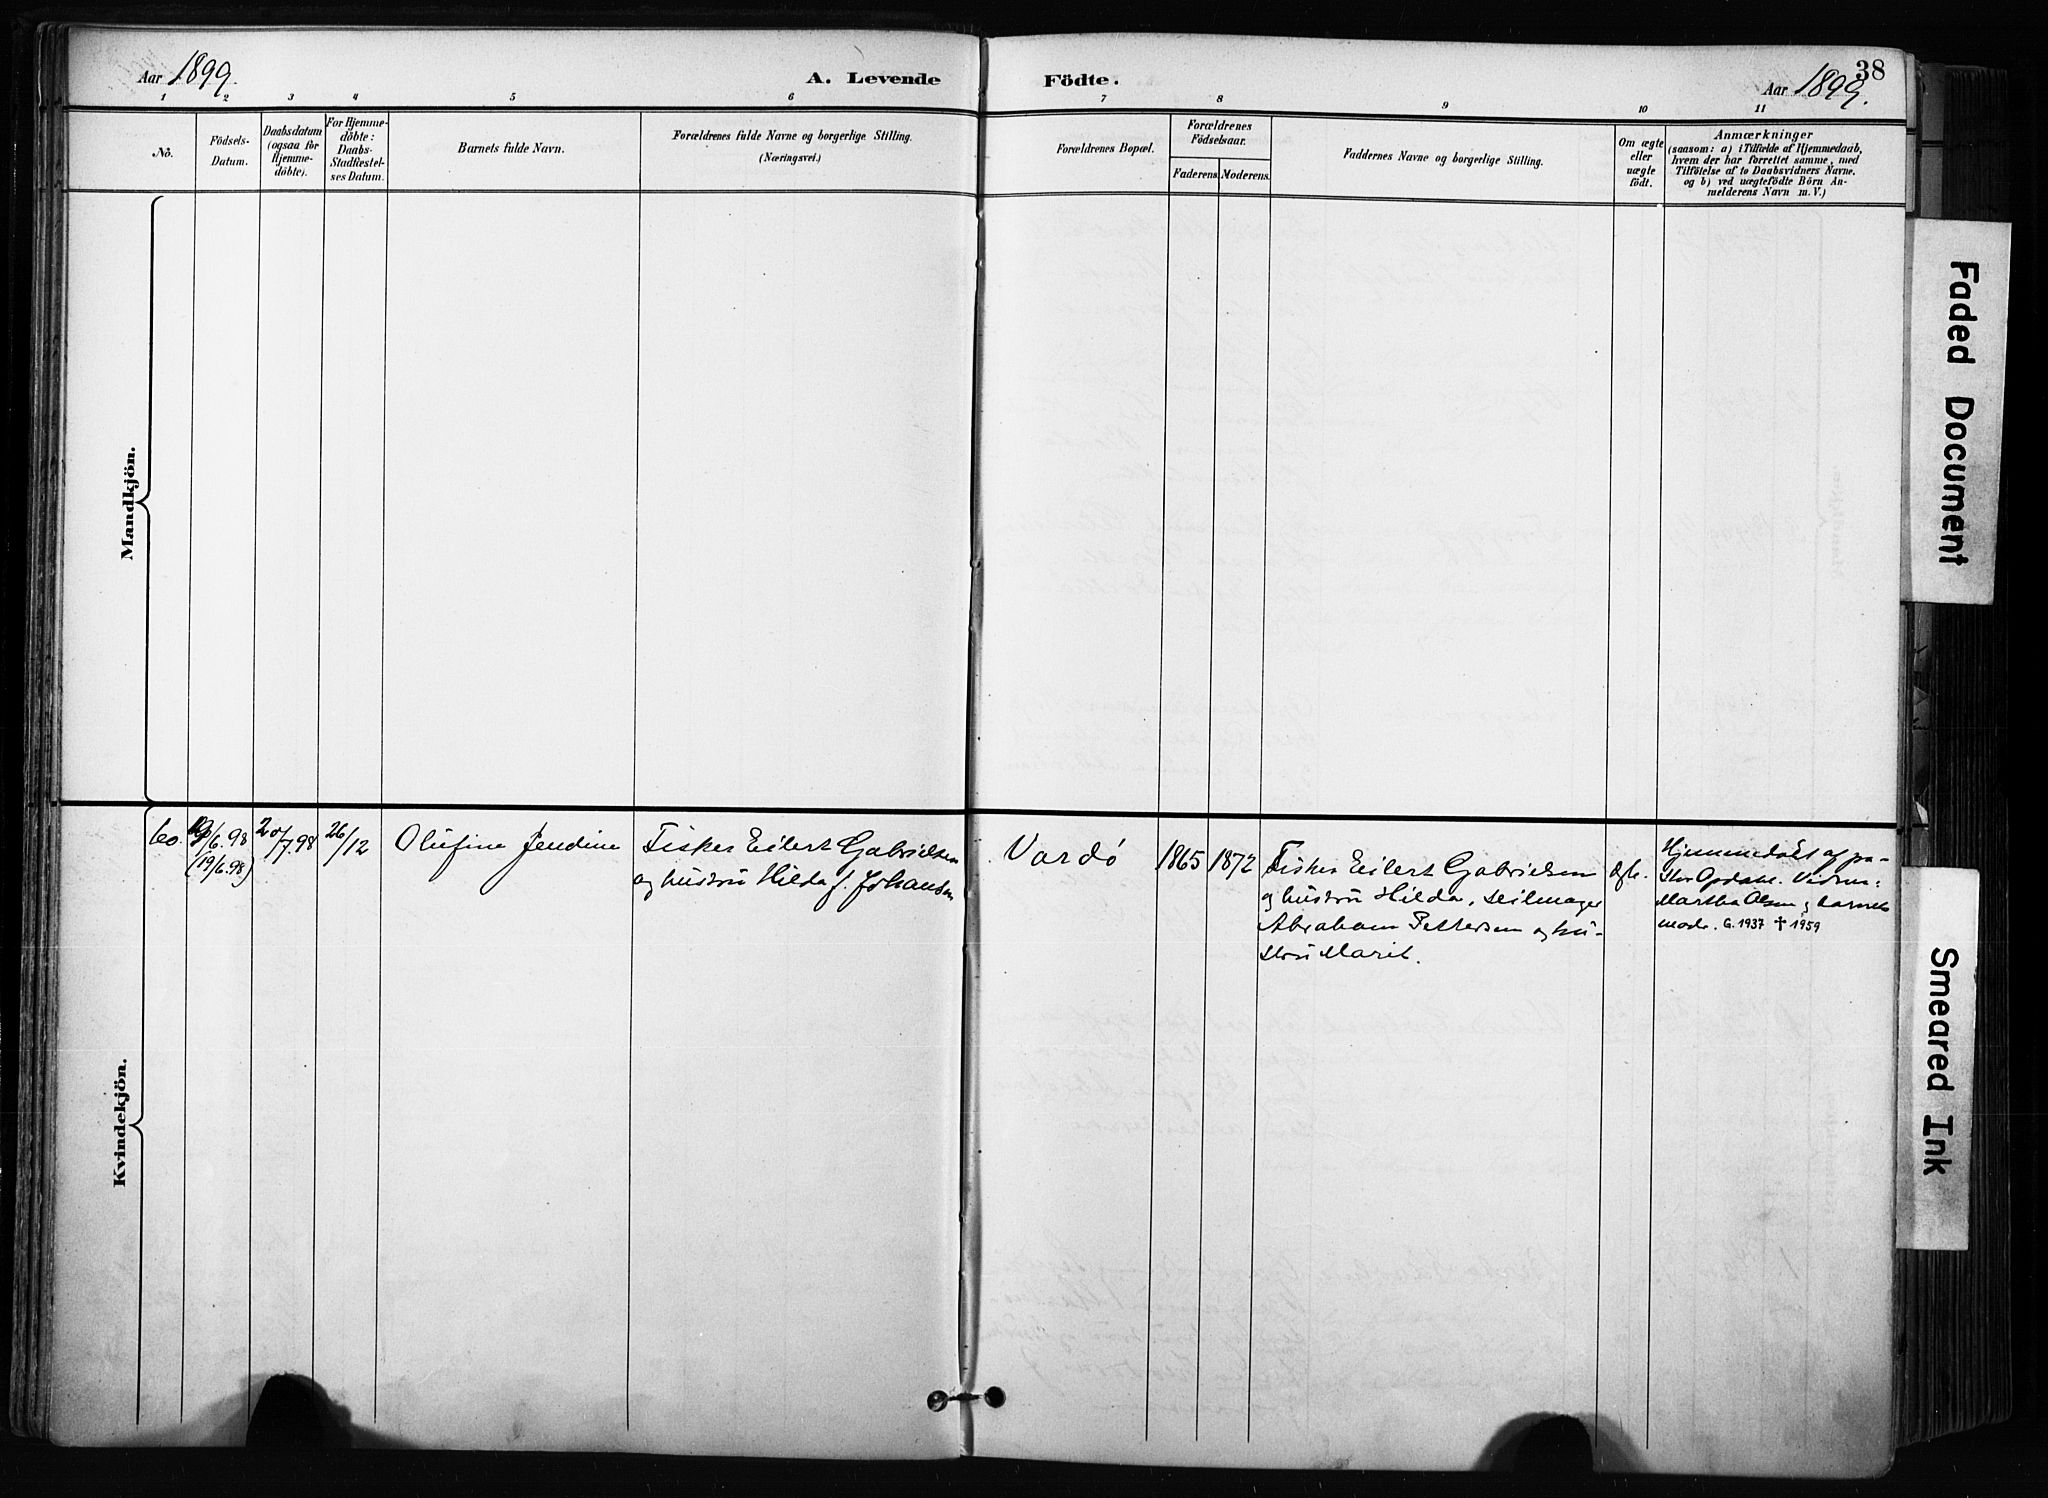 Aar 1899.
A. Levende
Födte.
Aar 1899.
38
1
2
3
4
5
6
7
8
9
10
11
No.
Födsels-
Datum.
Daabsdatum
(ogsaa for
Hjemme-
döbte).
For Hjemme-
döbte:
Daabs-
Stadfestel-
ses Datum.
Barnets fulde Navn.
Forældrenes fulde Navne og borgerlige Stilling.
(Næringsvei.)
Forældrenes Bopæl.
Forældrenes
Födselsaar.
Faderens.
Moderens.
Faddernes Navne og borgerlige Stilling.
Om ægte
eller
uægte
födt.
Anmærkninger
(saasom: a) i Tilfælde af Hjemmedaab,
hvem der har forrettet samme, med
Tilföielse af to Daabsvidners Navne.
og b) ved uægtefödte Börn An-
melderens Navn m. V.)
Mandkjön.
Kvindekjön.
60.
19/6.98
(19/6.98)
20/7.98
26/12
Olufine Jendine
Fisker Eilert Gabrielsen
og hustru Hilda f. Johansen
Vardö
1865
1872
Fisker Eilert Gabrielsen
og hustru Hilda, seilmager
Abraham Pettersen og hu-
stru Marit.
Ægte.
Hjemmedöbt af pa-
stor Opdahl. Vidner:
Martha Olsen og barnets
moder. G. 1937 ✝ 1959
Faded Document
Smeared Ink